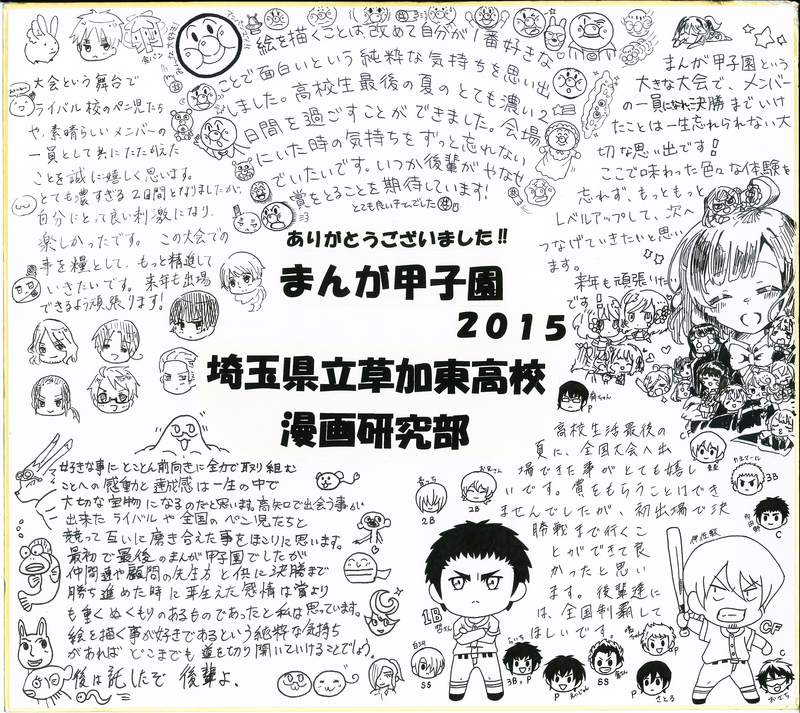 ありがとうございました!!
まんが甲子園
2015
埼玉県立草加東高校
漫画研究部
大会という舞台で
ライバル校のペン児たち
や、素晴らしいメンバーの
一員として共にたたかえた
ことを誠に嬉しく思います。
とても濃すぎる2日間となりましたが、
自分にとって良い刺激になり、
楽しかったです。この大会での
事を糧として、もっと精進して
いきたいです。来年も出場
できるよう頑張ります!
食パン
絵を描くことは改めて自分が1番好きな
ことで面白いという純粋な気持ちを思い出
しました。高校生最後の夏のとても濃い2
日間を過ごすことができました。会場
にいた時の気持ちをずっと忘れない
でいたいです。いつか後輩がやなせ
賞をとることを期待しています!
とても良いチームでした
まんが甲子園という
大きな大会で、メンバー
の一員になれ決勝までいけ
たことは一生忘れられない大
切な思い出です!
ここで味わった色々な体験を
忘れず、もっともっと
レベルアップして、次へ
つなげていきたいと思い
ます。
来年も頑張りたい
です!
好きな事にとことん前向きに全力で取り組む
ことへの感動と達成感は一生の中で
大切な宝物になるのだと思います。高知で出会う事が
出来たライバルや全国のペン児たちと
競って互いに磨き合えた事をほこりに思います。
最初で最後のまんが甲子園でしたが
仲間達や顧問の先生方と供に決勝まで
勝ち進めた時に芽生えた感情は賞より
も重くぬくもりのあるものであったと私は思っています。
絵を描く事が好きであるという純粋な気持ち
があれば どこまでも道を切り開いていけることでしょう。
後は託したぞ 後輩よ、
高校生活最後の
夏に、全国大会へ出
場できた事がとても嬉し
いです。賞をもらうことはでき
ませんでしたが、初出場で決
勝戦まで行くこ
とができて良
かったと思い
ます。後輩達に
は、全国制覇して
ほしいです。
P
C
3B
C
2B
2B
1B
CF
SS
3B, P
P
SS
P
P
さとる
C